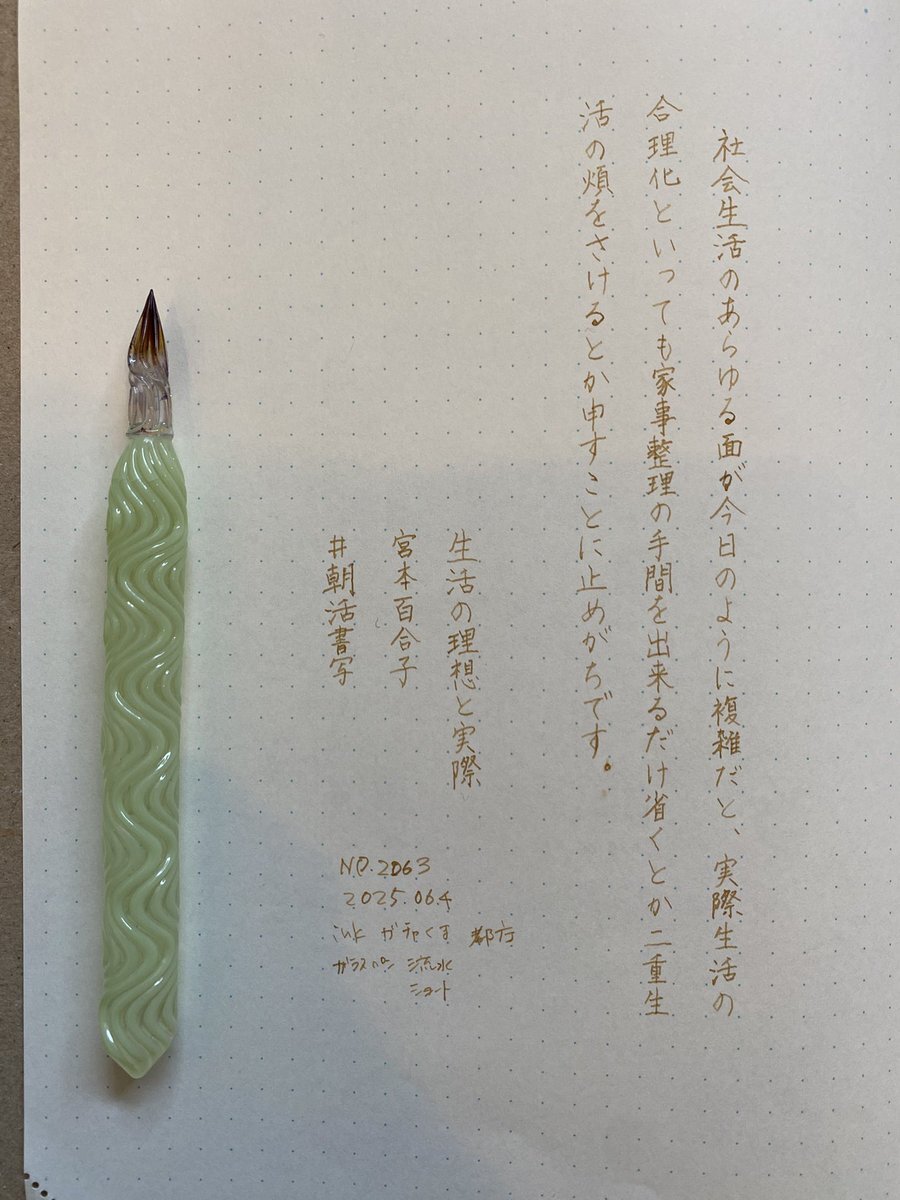 社会生活のあらゆる面が今日のように複雑だと、実際生活の
合理化といっても家事整理の手間を出来るだけ省くとか二重生
活の煩をさけるとか申すことに止めがちです。
生活の理想と実際
宮本百合子
#朝活書写
NO.2063
2025.06.4
ink ガチャくす 都方
ガラスペン 流水
ショート